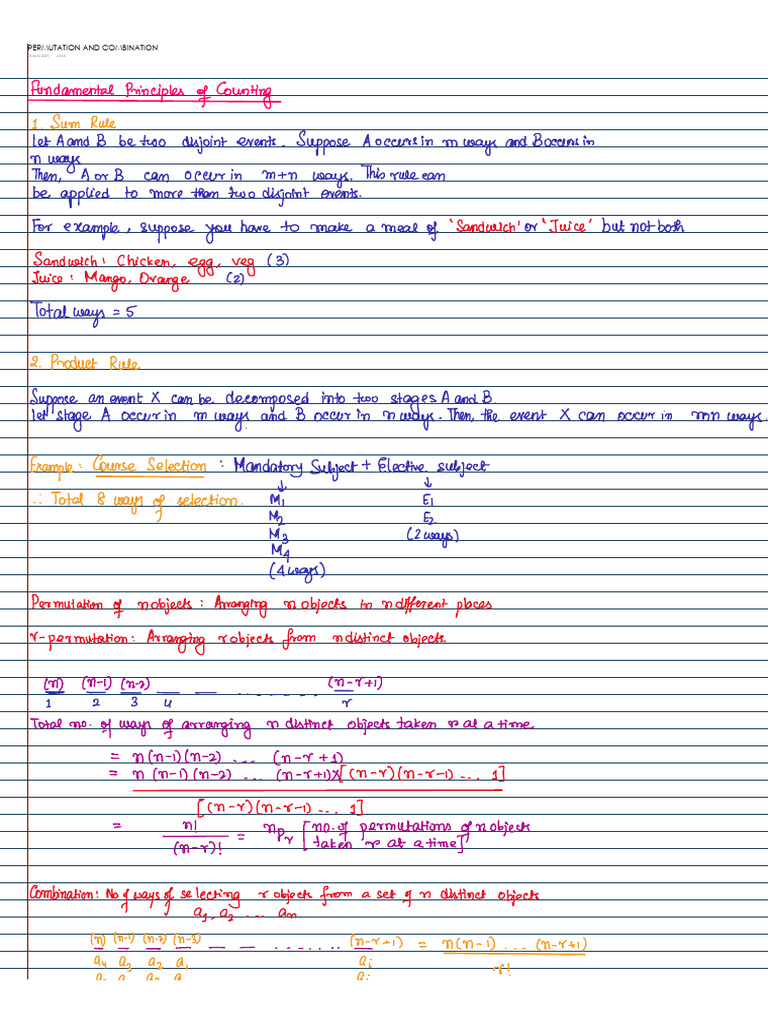 PERMUTATION AND COMBINATION
Fundamental Principles of Counting
1. Sum Rule
let A and B be two disjoint events. Suppose A occurs in m ways and B occurs in
n ways
Then, A or B can occur in m+n ways. This rule can
be applied to more than two disjoint events.
For example, suppose you have to make a meal of 'Sandwich' or 'Juice' but not both
Sandwich: Chicken, egg, veg (3)
Juice: Mango, Orange (2)
Total ways = 5
2. Product Rule
Suppose an event X can be decomposed into two stages A and B
let stage A occur in m ways and B occur in n ways. Then, the event X can occur in mn ways.
Example: Course Selection : Mandatory Subject + Elective subject
↓ ↓
∴ Total 8 ways of selection. M1 E1
M2 E2
M3 (2 ways)
M4
(4 ways)
Permutation of n objects: Arranging n objects in n different places
r-permutation: Arranging r objects from n distinct objects.
(n) (n-1) (n-2) __ __ ....... (n-r+1)
1 2 3 4 r
Total no. of ways of arranging n distinct objects taken r at a time
= n(n-1)(n-2) ... (n-r+1)
= n(n-1)(n-2) ... (n-r+1)x[(n-r)(n-r-1) ... 1]
[(n-r)(n-r-1) ... 1]
= n!/(n-r)! = nPr [no. of permutations of n objects
taken r at a time]
Combination: No of ways of selecting r objects from a set of n distinct objects
a1, a2 ... an
(n) (n-1) (n-2) (n-3) __ __ ....... (n-r+1) = n(n-1) ... (n-r+1)
a4 a3 a2 a1 ai r!